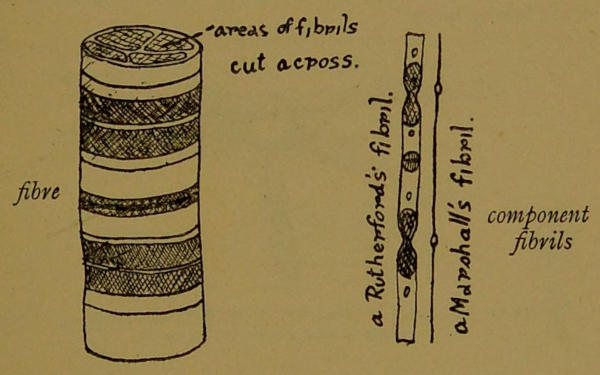 areas of fibrils
cut across.
fibre
a Rutherford's fibril.
a Marshall's fibril.
component
fibrils